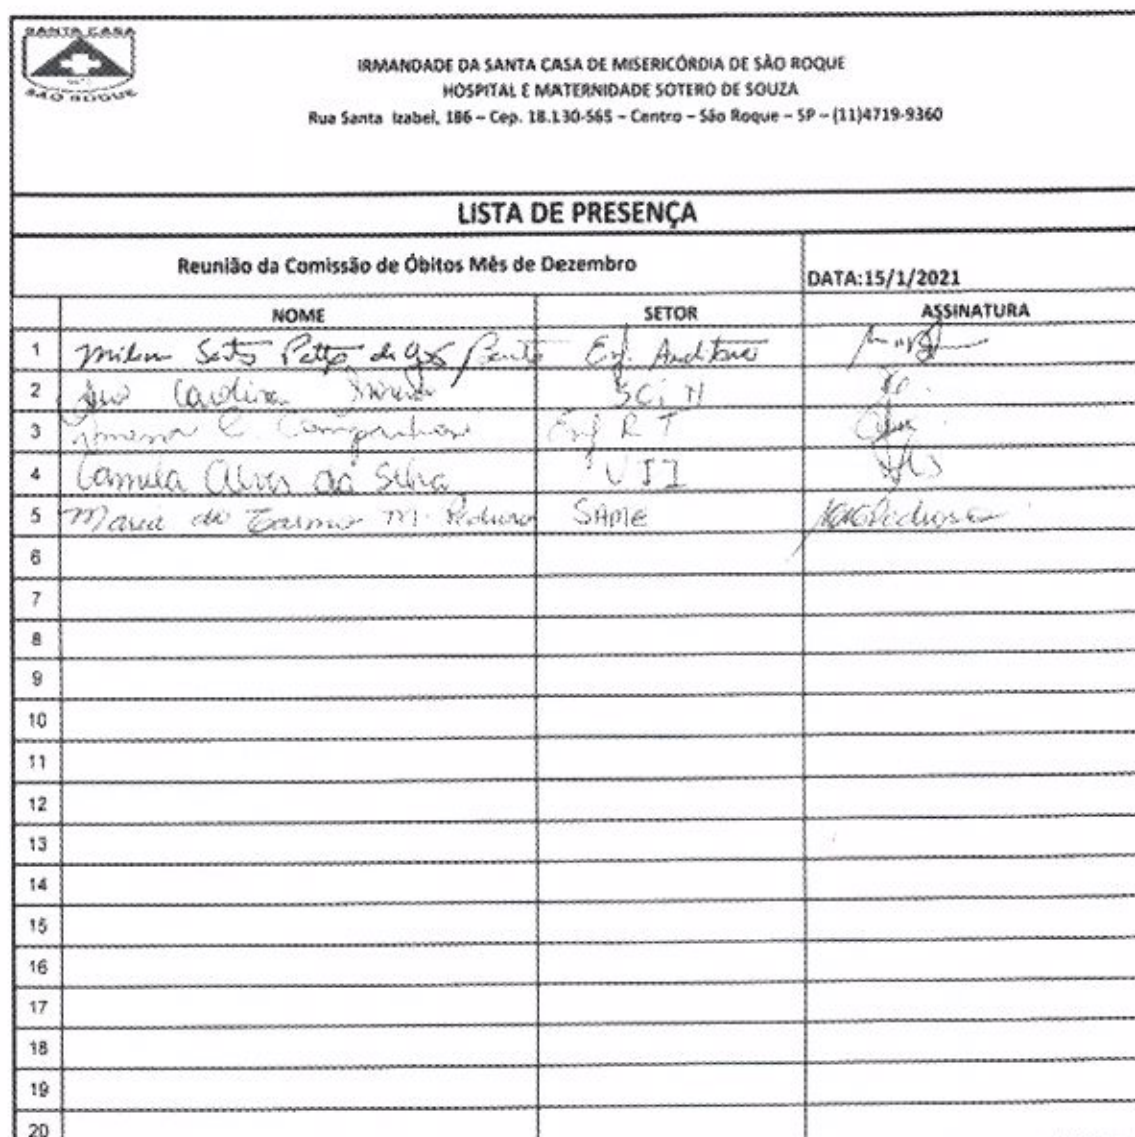 SANTA CASA
SÃO ROQUE
IRMANDADE DA SANTA CASA DE MISERICÓRDIA DE SÃO ROQUE
HOSPITAL E MATERNIDADE SOTERO DE SOUZA
Rua Santa Izabel, 186 – Cep. 18.130-565 – Centro – São Roque – SP – (11)4719-9360
LISTA DE PRESENÇA
Reunião da Comissão de Óbitos Mês de Dezembro
DATA:15/1/2021
NOME SETOR ASSINATURA
1 Enf. Auditora
2 Carolina SCIH
3 Enf RT
4 Camila Alves da Silva UTI
5 Maria do Carmo M. Pedroso SAME
6
7
8
9
10
11
12
13
14
15
16
17
18
19
20